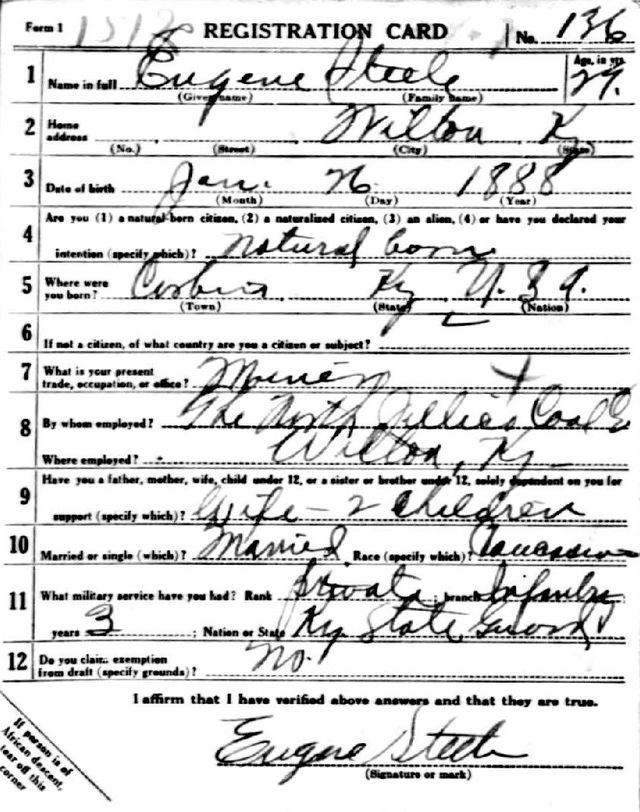 Form 1 REGISTRATION CARD No. 136
1 Name in full Eugene Steele Age, in yrs. 29.
(Given name) (Family name)
2 Home address Wilton Ky
(No.) (Street) (City) (State)
3 Date of birth Jan. 26 1888
(Month) (Day) (Year)
4 Are you (1) a natural-born citizen, (2) a naturalized citizen, (3) an alien, (4) or have you declared your
intention (specify which)? natural born
5 Where were you born? Corbin Ky U. S. A.
(Town) (State) (Nation)
6 If not a citizen, of what country are you a citizen or subject?
7 What is your present trade, occupation, or office? Miner
8 By whom employed? The North Jellico Coal Co
Where employed? Wilton, Ky
9 Have you a father, mother, wife, child under 12, or a sister or brother under 12, solely dependent on you for
support (specify which)? Wife - 2 Children
10 Married or single (which)? Married Race (specify which)? Caucasian
11 What military service have you had? Rank Private ; branch Infantry
years 3 ; Nation or State Ky. State Guard
12 Do you claim exemption from draft (specify grounds)? No.
I affirm that I have verified above answers and that they are true.
Eugene Steele
(Signature or mark)
If person is of
African descent,
tear off this
corner